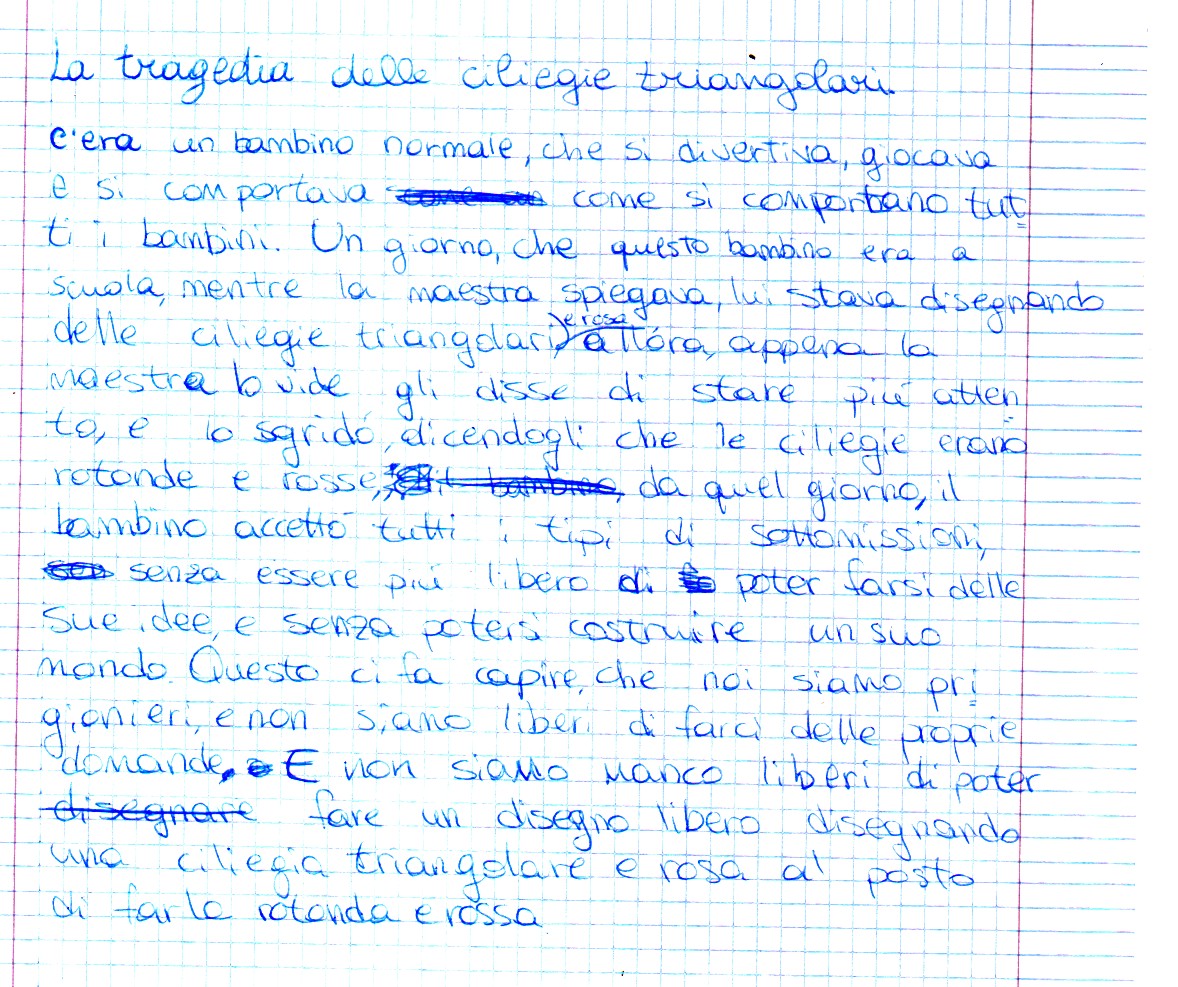 La tragedia delle ciliegie triangolari.
C'era un bambino normale, che si divertiva, giocava
e si comportava come si comportano tut
ti i bambini. Un giorno, che questo bambino era a
scuola, mentre la maestra spiegava, lui stava disegnando
delle ciliegie triangolari e rosa, allora, appena la
maestra lo vide gli disse di stare più atten
to, e lo sgridò, dicendogli che le ciliegie erano
rotonde e rosse, da quel giorno, il
bambino accettò tutti i tipi di sottomissioni,
senza essere più libero di poter farsi delle
sue idee, e senza potersi costruire un suo
mondo. Questo ci fa capire, che noi siamo pri
gionieri, e non siamo liberi di farci delle proprie
domande. E non siamo manco liberi di poter
disegnare fare un disegno libero disegnando
una ciliegia triangolare e rosa al posto
di farla rotonda e rossa